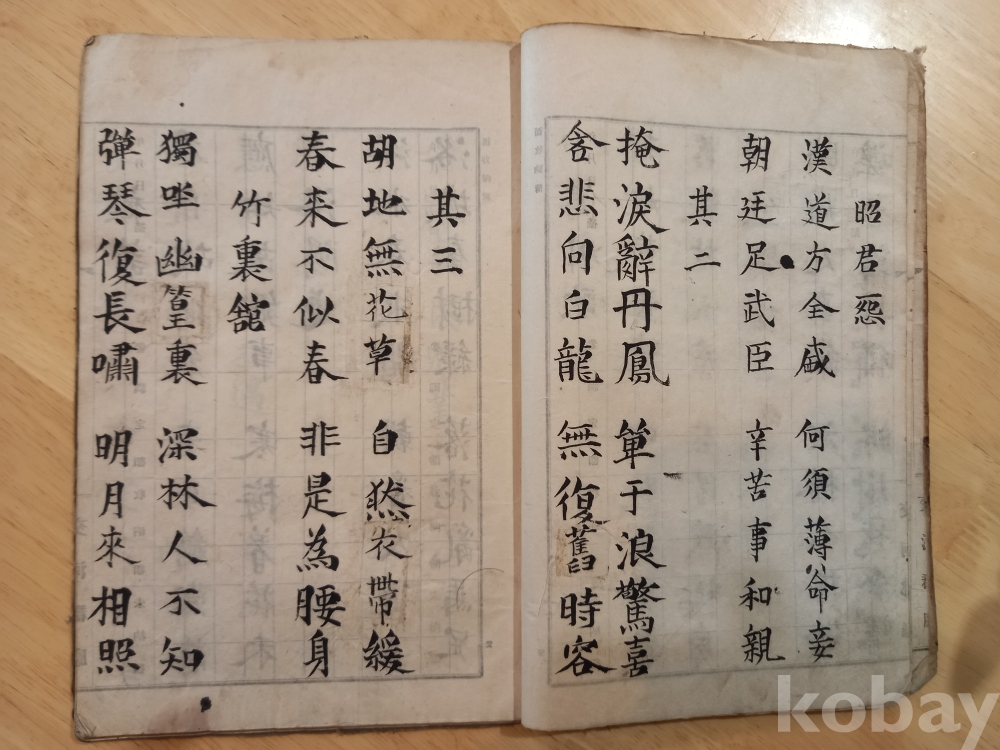 昭君怨
漢道方全盛 何須薄命妾
朝廷足武臣 辛苦事和親
其二
掩淚辭丹鳳 單于浪驚喜
含悲向白龍 無復舊時容
其三
胡地無花草 自然衣帶緩
春来不似春 非是為腰身
竹裏舘
獨坐幽篁裏 深林人不知
彈琴復長嘯 明月來相照
kobay